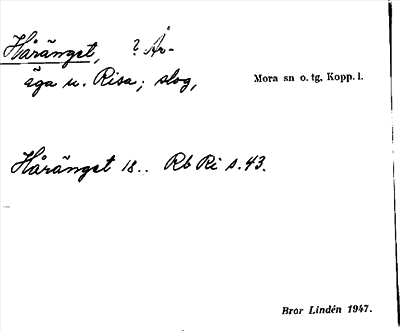 Håränget, ? År-
äga u. Risa; slog,
Mora sn o. tg, Kopp. l.
Håränget 18.. Rb Ri s. 43.
Bror Lindén 1947.